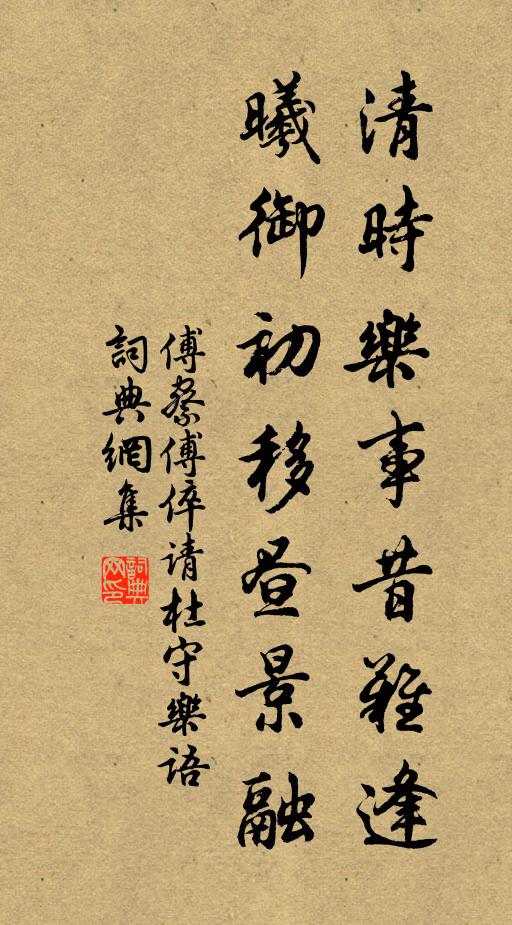 清時樂事昔難逢
曦御初移昼景融
傅察傅倅请杜守樂语
詞典網集
詞典网印